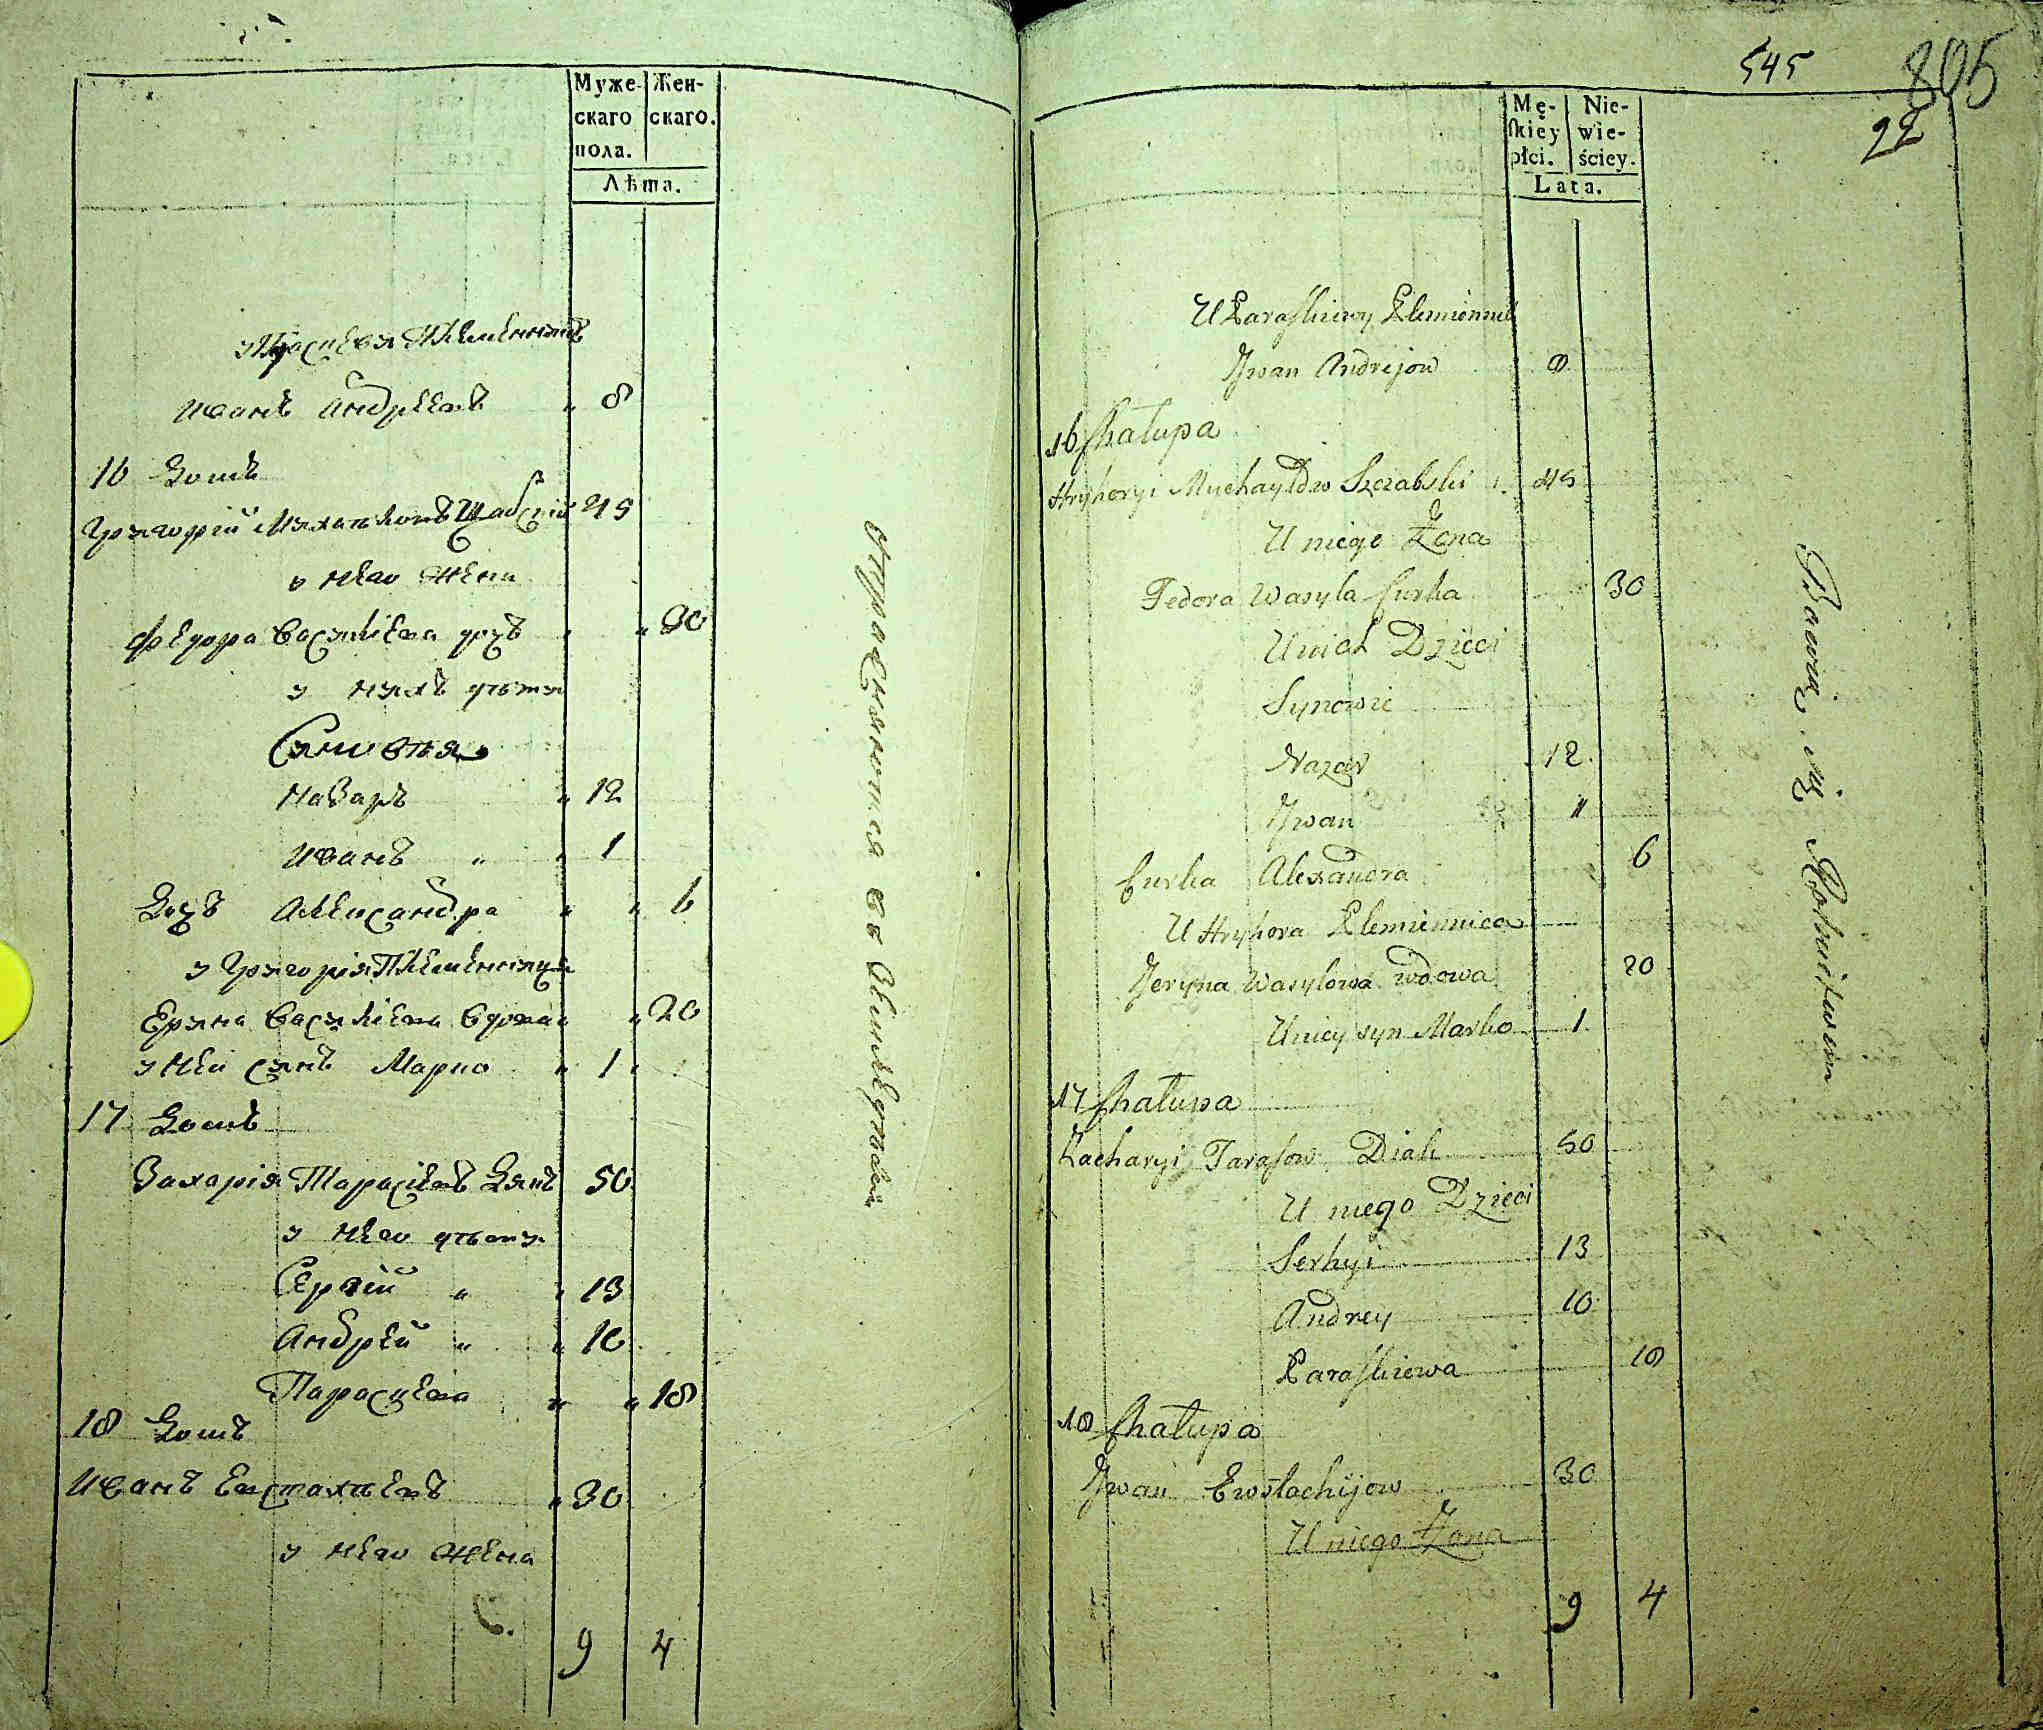 Муже- Жен-
скаго скаго.
пола.
Лѣта.
у Парасцевіи Племенникъ
Иванъ Андреевъ " 8
16 Домъ
Григорій Михайловъ Щабскій 45
у него жена
Федора Василіева дочь " " 30
у нихъ дѣти
Сыновья
Назаръ " 12
Иванъ " " 1
Дочь Александра " " 6
у Григорія Племенница
Ерина Василіева вдова " 20
у ней сынъ Марко " 1 "
17 Домъ
Захарія Тарасіевъ Дякъ 50
у него дѣти
Сергій " " 13
Андрей " " 10
Парасцева " " 18
18 Домъ
Иванъ Евстахіевъ " 30
у него жена
9 4
упражняются въ Земледѣліи
545
805
92
Mę- Nie-
skiey wie-
płci. ściey.
Lata.
U Paraskiewy Plemiennik
Jwan Andrijow 8
16 Chałupa
Hryhoryi Mychayłow Szczabski 45
U niego Żona
Fedora Wasyla Curka 30
U nich Dzieci
Synowie
Nazar 12
Jwan 1
Curka Alexandra 6
U Hryhora Plemiennica
Jeryna Wasylowa wdowa 20
U niey syn Marko 1
17 Chałupa
Zacharyi Tarasow Diak 50
U niego Dzieci
Serhyi 13
Andrey 10
Paraskiewa 18
18 Chałupa
Jwan Ewstachijow 30
U niego Żona
9 4
Bawią się Rolnictwem